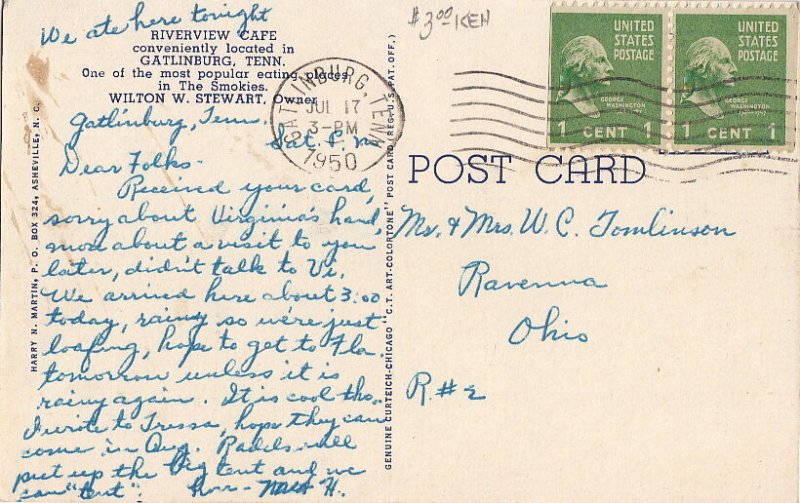 We ate here tonight
RIVERVIEW CAFE
conveniently located in
GATLINBURG, TENN.
One of the most popular eating places
in The Smokies.
WILTON W. STEWART, Owner
Gatlinburg, Tenn.
Sat. P.M.
Dear Folks-
Received your card,
sorry about Virginia's hand,
more about a visit to you
later, didn't talk to Vi.
We arrived here about 3:00
today, rainy so we're just
loafing, hope to get to Fla.
tomorrow unless it is
rainy again. It is cool tho.
I wrote to Tressa, hope they can
come in Aug. Radels will
put up the big tent and we
can "tent".
HARRY N. MARTIN, P. O. BOX 324, ASHEVILLE, N. C.
GENUINE CURTEICH-CHICAGO "C.T. ART-COLORTONE" POST CARD (REG. U.S. PAT. OFF.)
$3.00 KEN
GATLINBURG, TENN.
JUL 17
3-PM
1950
UNITED STATES POSTAGE
GEORGE WASHINGTON
1 CENT 1
UNITED STATES POSTAGE
GEORGE WASHINGTON
1 CENT 1
POST CARD
Mr. & Mrs. W. C. Tomlinson
Ravenna
Ohio
R. # 2